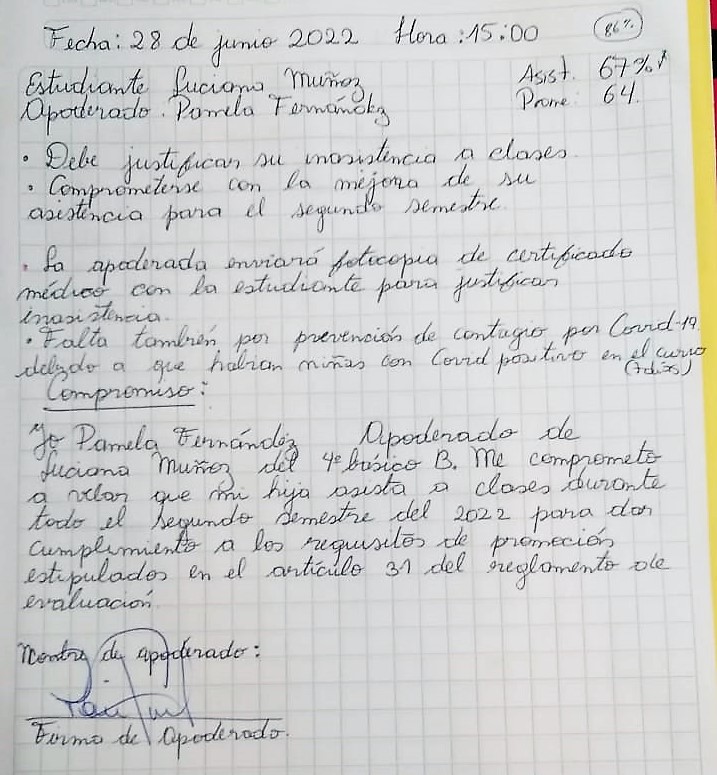 86%
Fecha: 28 de junio 2022 Hora: 15:00
Estudiante Luciana Muñoz Asist. 67%
Apoderado. Pamela Fernández Prome: 64.
• Debe justificar su inasistencia a clases.
• Comprometerse con la mejora de su
asistencia para el segundo semestre.
• La apoderada enviará fotocopia de certificado
médico con la estudiante para justificar
inasistencia.
• Falta también por prevención de contagio por Covid-19
debido a que habian niñas con Covid positivo en el curso
Compromiso:
Yo Pamela Fernández Apoderado de
Luciana Muñoz del 4º básico B. Me comprometo
a velar que mi hija asista a clases durante
todo el segundo semestre del 2022 para dar
cumplimiento a los requisitos de promoción
estipulados en el artículo 31 del reglamento de
evaluación.
Nombre de apoderado:
Firma de Apoderado.